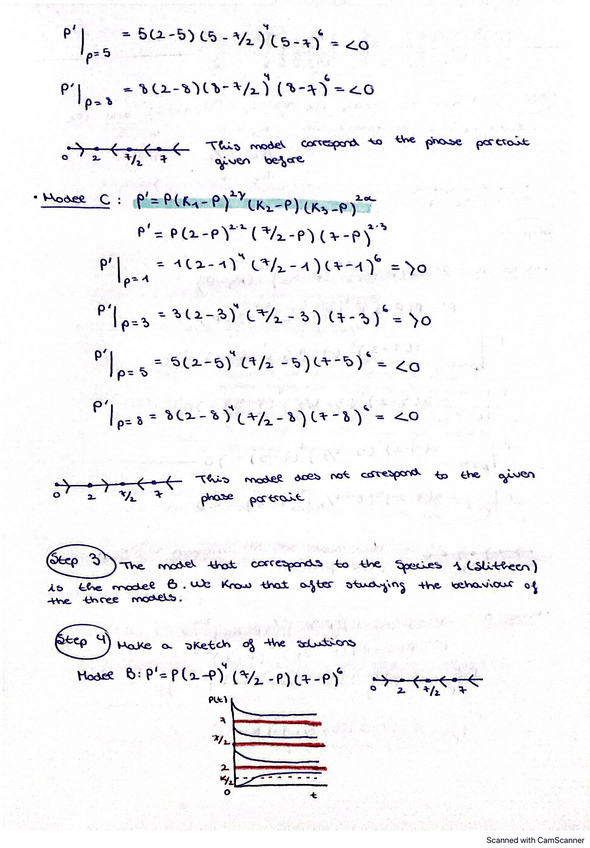 P'|p=5 = 5(2-5)(5-7/2)⁴(5-7)⁶ = <0
P'|p=8 = 8(2-8)(8-7/2)⁴(8-7)⁶ = <0
0 2 7/2 7 This model correspond to the phase portrait
given before
• Model C: P'=P(K₁-P)^2γ (K₂-P)(K₃-P)^2α
P' = P(2-P)^2·2 (7/2-P)(7-P)^2·3
P'|p=1 = 1(2-1)⁴(7/2-1)(7-1)⁶ = >0
P'|p=3 = 3(2-3)⁴(7/2-3)(7-3)⁶ = >0
P'|p=5 = 5(2-5)⁴(7/2-5)(7-5)⁶ = <0
P'|p=8 = 8(2-8)⁴(7/2-8)(7-8)⁶ = <0
0 2 7/2 7 This model does not correspond to the given
phase portrait
Step 3 The model that corresponds to the Species 1 (Slitheen)
is the model B. We know that after studying the behaviour of
the three models.
Step 4 Make a sketch of the solutions
Model B: P'=P(2-P)⁴(7/2-P)(7-P)⁶ 0 2 7/2 7
P(t)
7
7/2
2
K/2
0
t
Scanned with CamScanner